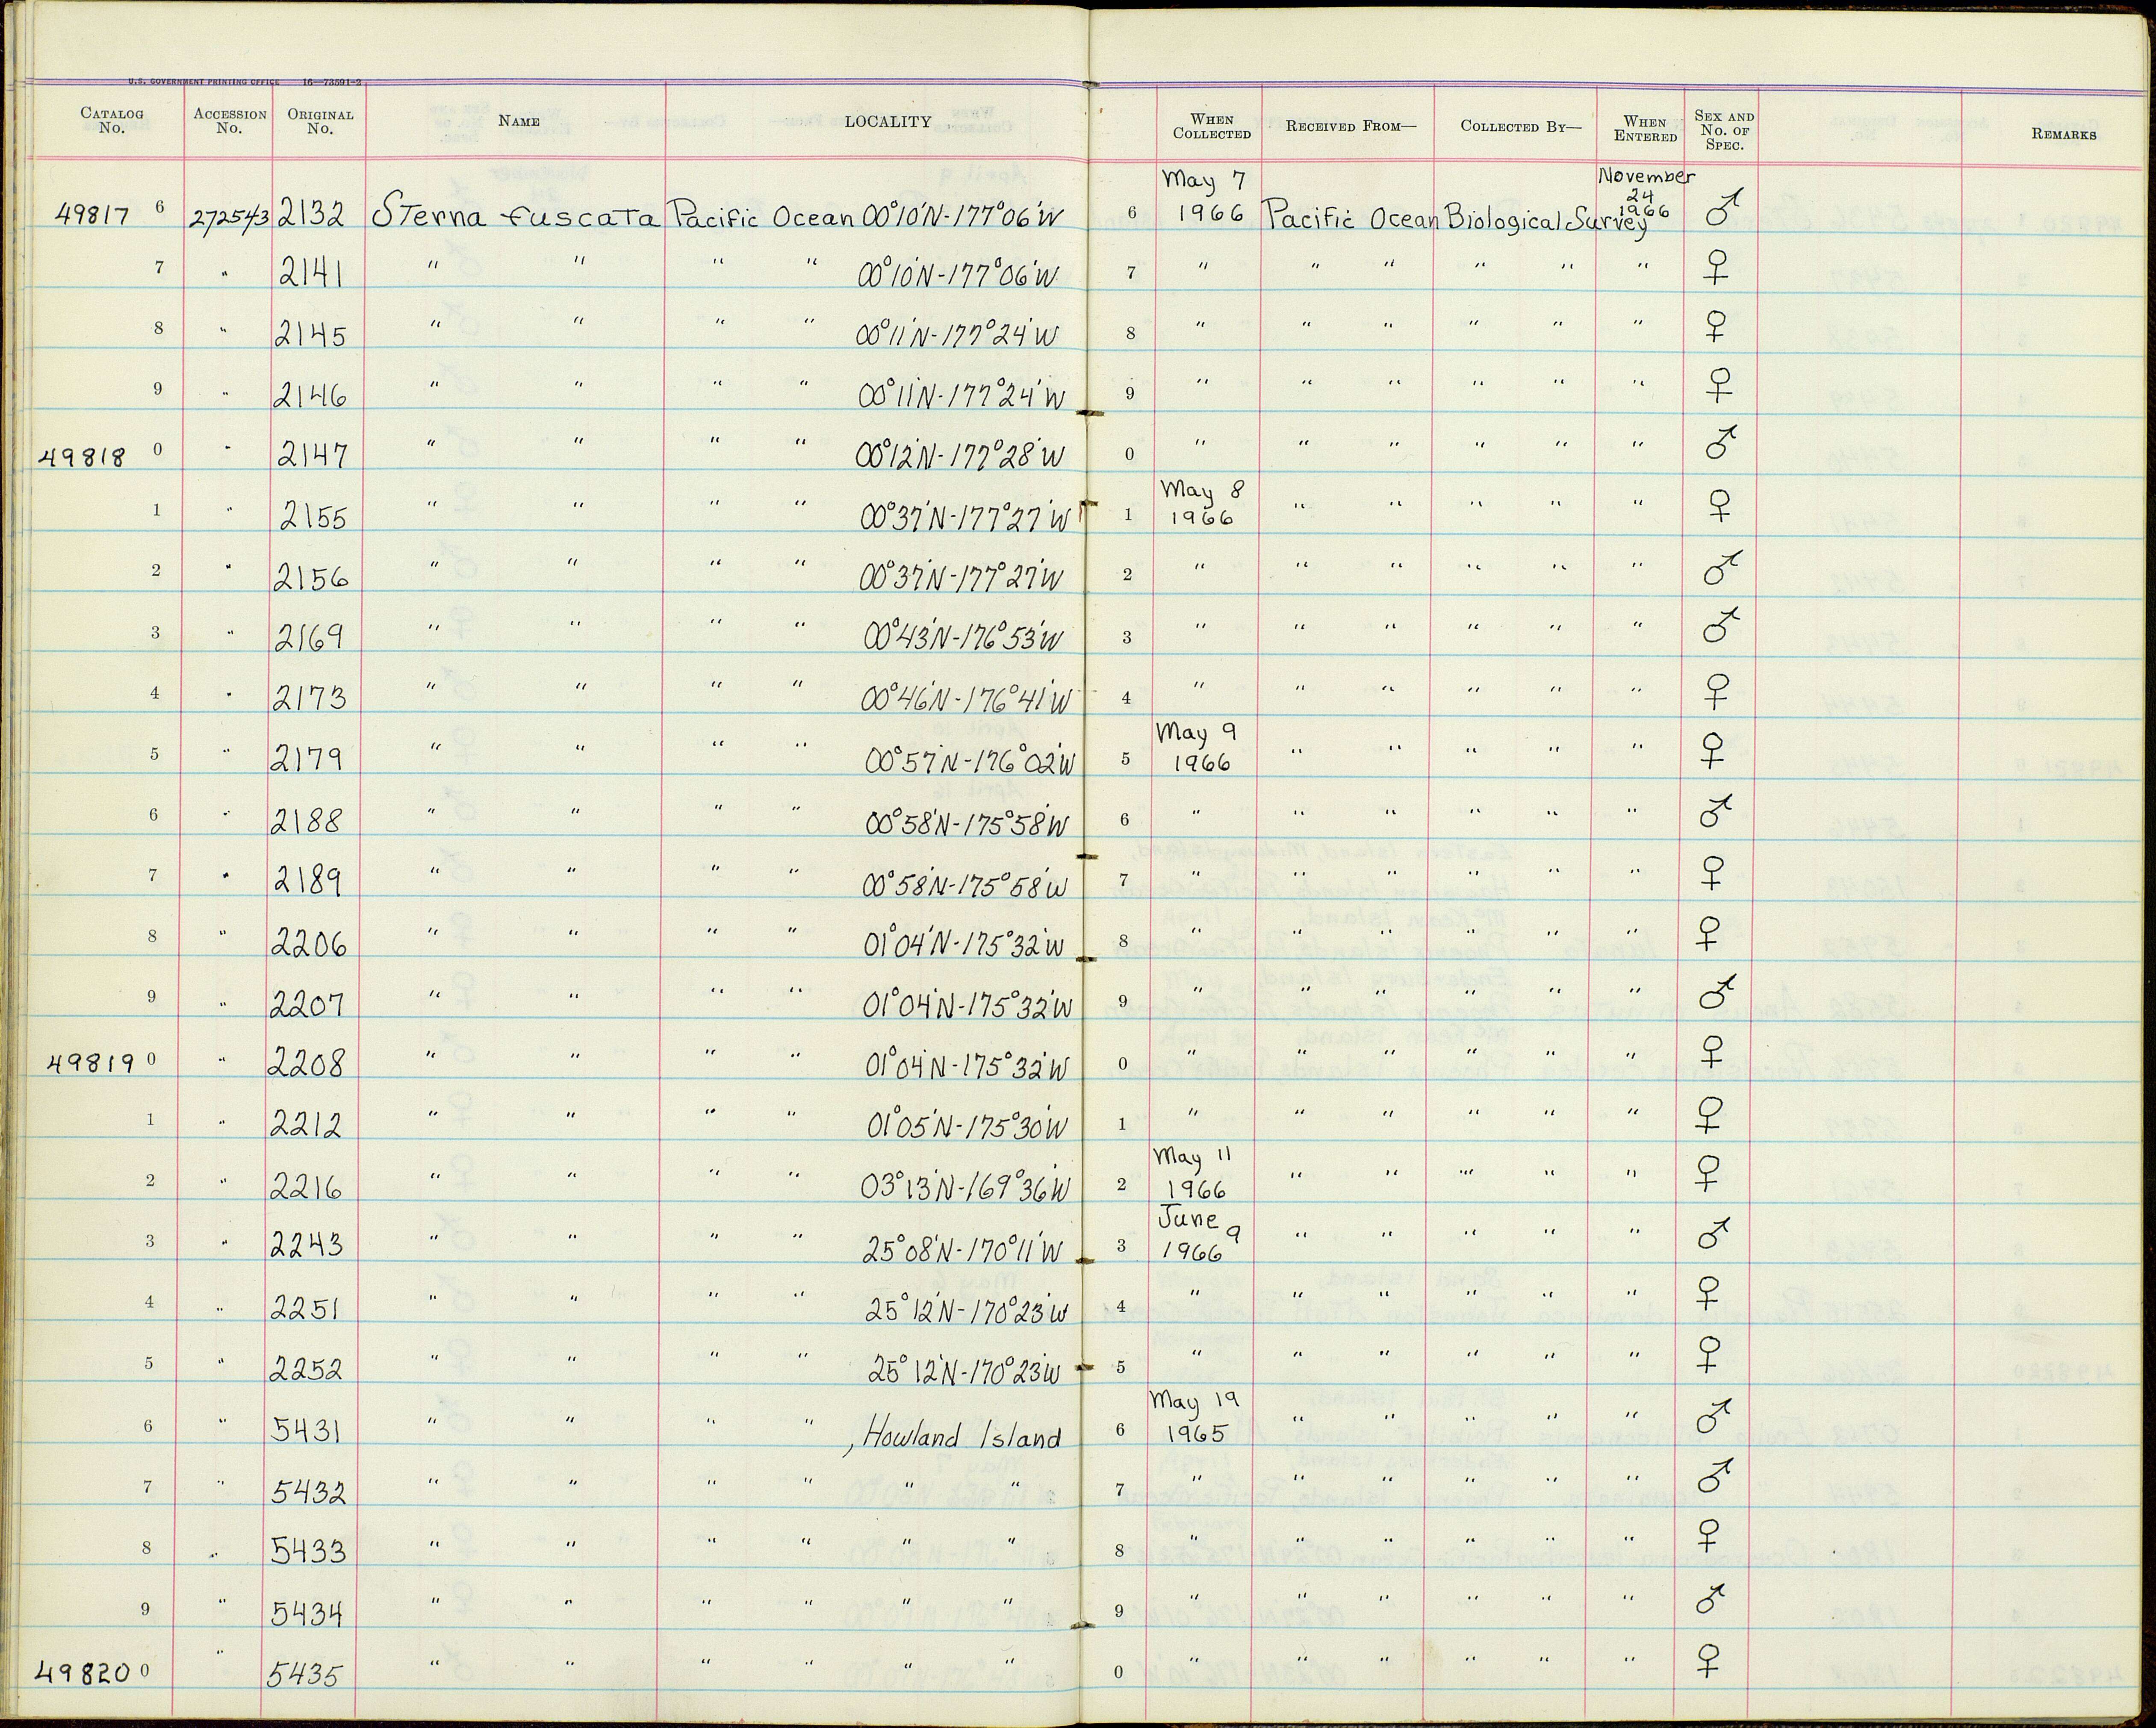 U.S. GOVERNMENT PRINTING OFFICE 16—73591-2
CATALOG No. ACCESSION No. ORIGINAL No. NAME LOCALITY WHEN COLLECTED RECEIVED FROM— COLLECTED BY— WHEN ENTERED SEX AND No. OF SPEC. REMARKS
49817 6 272543 2132 Sterna fuscata Pacific Ocean 00°10'N-177°06'W 6 May 7 1966 Pacific Ocean Biological Survey November 24 1966 ♂
7 " 2141 " " " " 00°10'N-177°06'W 7 " " " " " " ♀
8 " 2145 " " " " 00°11'N-177°24'W 8 " " " " " " ♀
9 " 2146 " " " " 00°11'N-177°24'W 9 " " " " " " ♀
49818 0 " 2147 " " " " 00°12'N-177°28'W 0 " " " " " " ♂
1 " 2155 " " " " 00°37'N-177°27'W 1 May 8 1966 " " " " " ♀
2 " 2156 " " " " 00°37'N-177°27'W 2 " " " " " " ♂
3 " 2169 " " " " 00°43'N-176°53'W 3 " " " " " " ♂
4 " 2173 " " " " 00°46'N-176°41'W 4 " " " " " " ♀
5 " 2179 " " " " 00°57'N-176°02'W 5 May 9 1966 " " " " " ♀
6 " 2188 " " " " 00°58'N-175°58'W 6 " " " " " " ♂
7 " 2189 " " " " 00°58'N-175°58'W 7 " " " " " " ♀
8 " 2206 " " " " 01°04'N-175°32'W 8 " " " " " " ♀
9 " 2207 " " " " 01°04'N-175°32'W 9 " " " " " " ♂
49819 0 " 2208 " " " " 01°04'N-175°32'W 0 " " " " " " ♀
1 " 2212 " " " " 01°05'N-175°30'W 1 " " " " " " ♀
2 " 2216 " " " " 03°13'N-169°36'W 2 May 11 1966 " " " " " ♀
3 " 2243 " " " " 25°08'N-170°11'W 3 June 9 1966 " " " " " ♂
4 " 2251 " " " " 25°12'N-170°23'W 4 " " " " " " ♀
5 " 2252 " " " " 25°12'N-170°23'W 5 " " " " " " ♀
6 " 5431 " " " " , Howland Island 6 May 19 1965 " " " " " ♂
7 " 5432 " " " " " " 7 " " " " " " ♂
8 " 5433 " " " " " " 8 " " " " " " ♀
9 " 5434 " " " " " " 9 " " " " " " ♂
49820 0 " 5435 " " " " " " 0 " " " " " " ♀